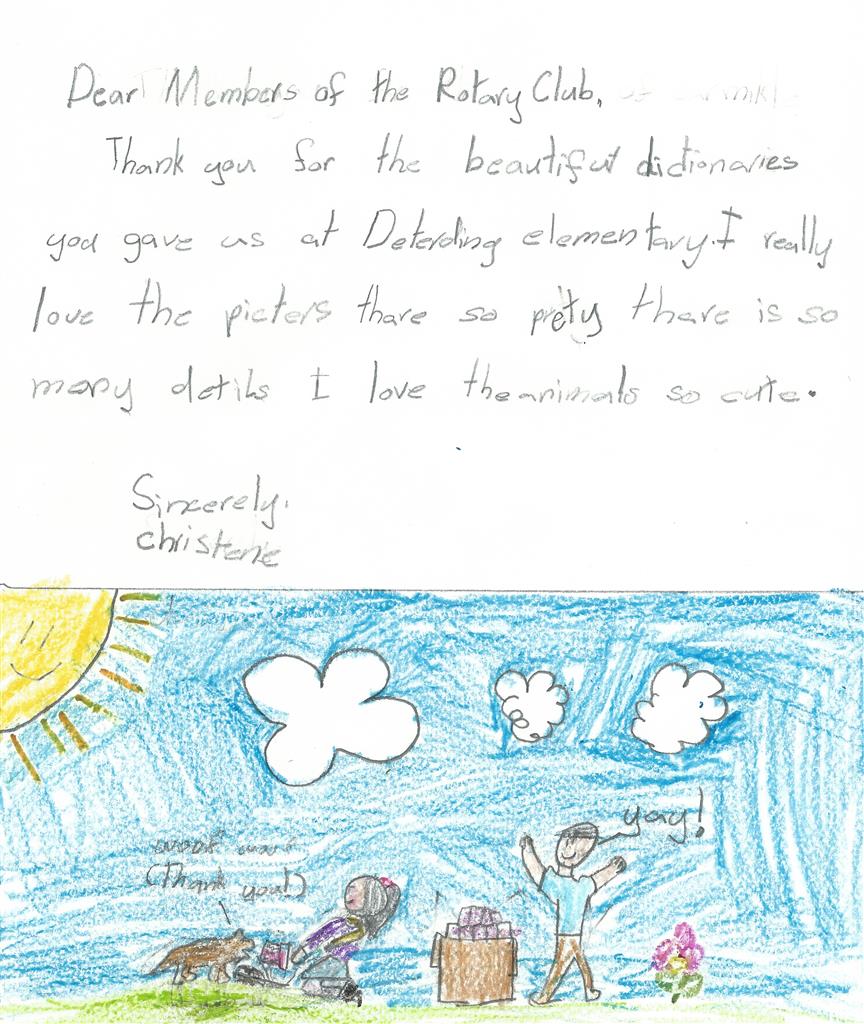 Dear Members of the Rotary Club,
Thank you for the beautiful dictionaries
you gave us at Deterding elementary. I really
love the picters thare so prety thare is so
many detils I love the animals so cute.
Sincerely,
christene
yay!
woof woof
(Thank you!)